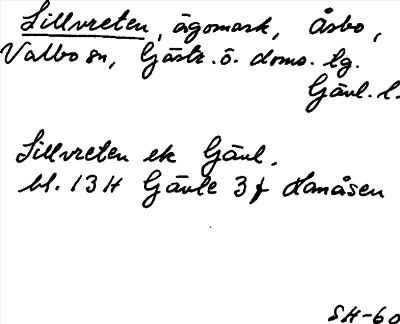 Lillvreten, ägomark, Åsbo,
Valbo sn, Gästr. ö. doms. tg.
Gävl. l.
Lillvreten ek Gävl.
bl. 13 H Gävle 3 f Hanåsen
SH-60